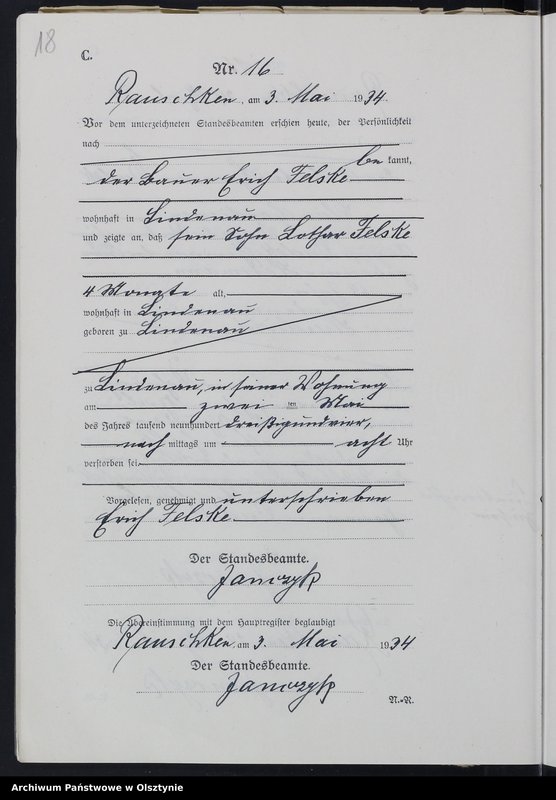 18
C.
Nr. 16
Rauschken, am 3. Mai 1934.
Vor dem unterzeichneten Standesbeamten erschien heute, der Persönlichkeit
nach
be kannt,
der Bauer Erich Felske
wohnhaft in Lindenau
und zeigte an, daß sein Sohn Lothar Felske
4 Monate alt,
wohnhaft in Lindenau
geboren zu Lindenau
zu Lindenau, in seiner Wohnung
am zwei ten Mai
des Jahres tausend neunhundert dreißigundvier,
nach mittags um acht Uhr
verstorben sei.
Vorgelesen, genehmigt und unterschrieben
Erich Felske
Der Standesbeamte.
Janczyk
Die Übereinstimmung mit dem Hauptregister beglaubigt
Rauschken, am 3. Mai 1934
Der Standesbeamte.
Janczyk
N.=R.
Archiwum Państwowe w Olsztynie